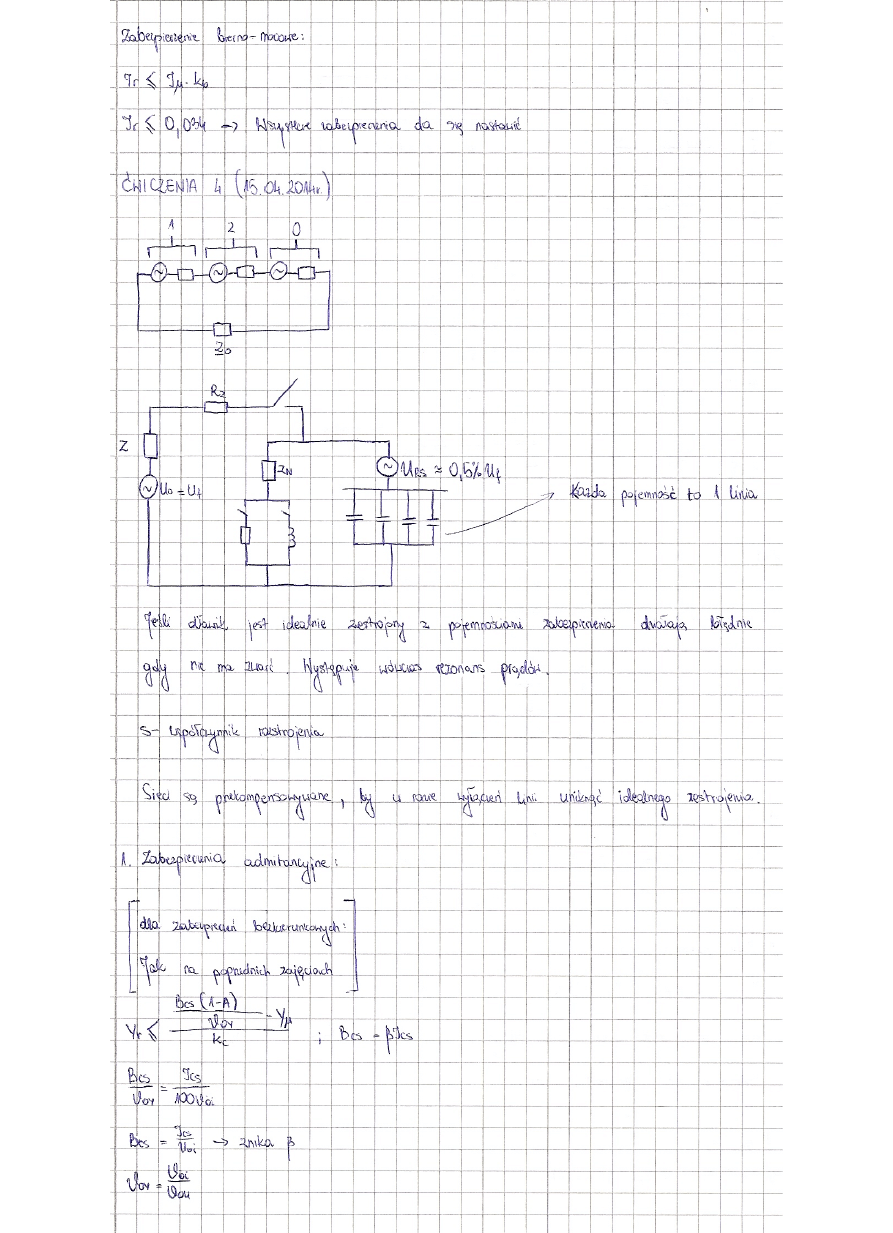 Zabezpieczenie bierno-mocowe:
Ir ≤ Iμ · kp
Ir ≤ 0,034 → Wszystkie zabezpieczenia da się nastawić
ĆWICZENIA 4 (15.04.2014r.)
1 2 0
Zb
Rz
Z
ZN
U0 = Uf
URS ≈ 0,5% Uf
Każda pojemność to 1 linia
Jeśli dławik jest idealnie zestrojony z pojemnościami zabezpieczenia działają błędnie
gdy nie ma zwarć. Występuje wówczas rezonans prądów.
s - współczynnik rozstrojenia
Sieci są przekompensowywane, by w razie wyłączeń linii uniknąć idealnego zestrojenia.
1. Zabezpieczenia admitancyjne:
dla zabezpieczeń bezkierunkowych:
Jak na poprzednich zajęciach
Yr ≤ (Bcs (1-A) / ϑoy - Yμ) / kc ; Bcs = βIcs
Bcs / ϑoy = Ics / 100ϑoi
Bcs = Ics / ϑoi → znika β
ϑoy = ϑoi / ϑou